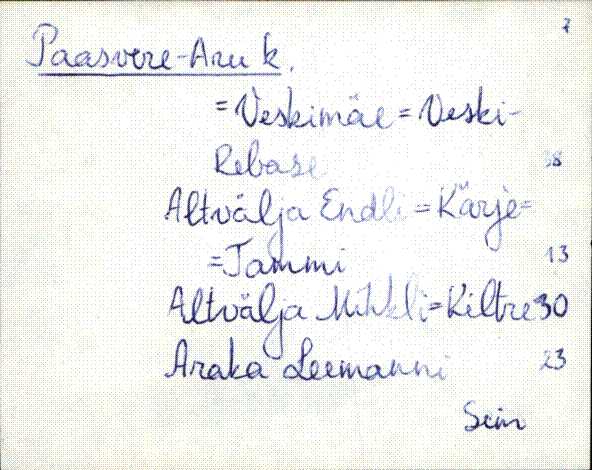 7
Paasvere-Aru k.
= Veskimäe = Veski-
Rebase 38
Altvälja Endli = Kärje =
= Tammi 13
Altvälja Mihkli = Kiltre 30
Araka Leemanni 23